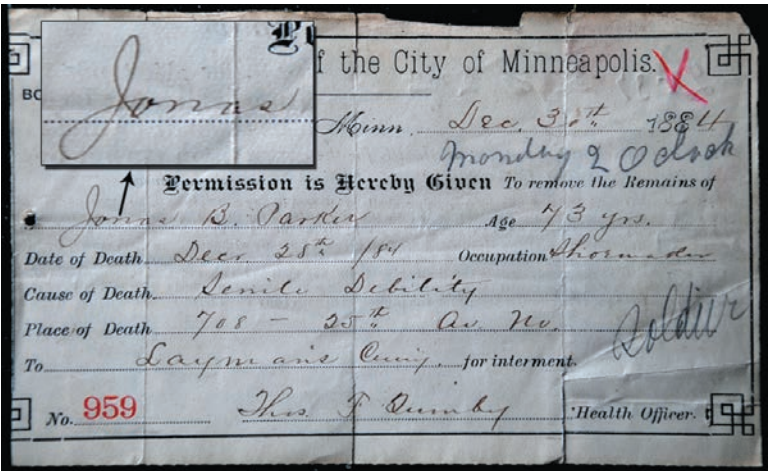 Jonas
f the City of Minneapolis.
BO
Minn. Dec. 30th 1884
Monday 2 O clock
Permission is Hereby Given To remove the Remains of
Jonas B. Parker Age 73 yrs.
Date of Death Dec. 28th /84 Occupation Shoemaker
Cause of Death Senile Debility
Place of Death 708 - 25th Av. No.
Soldier
To Layman's Cemy. for interment.
No. 959 Thos. F. Quimby Health Officer.